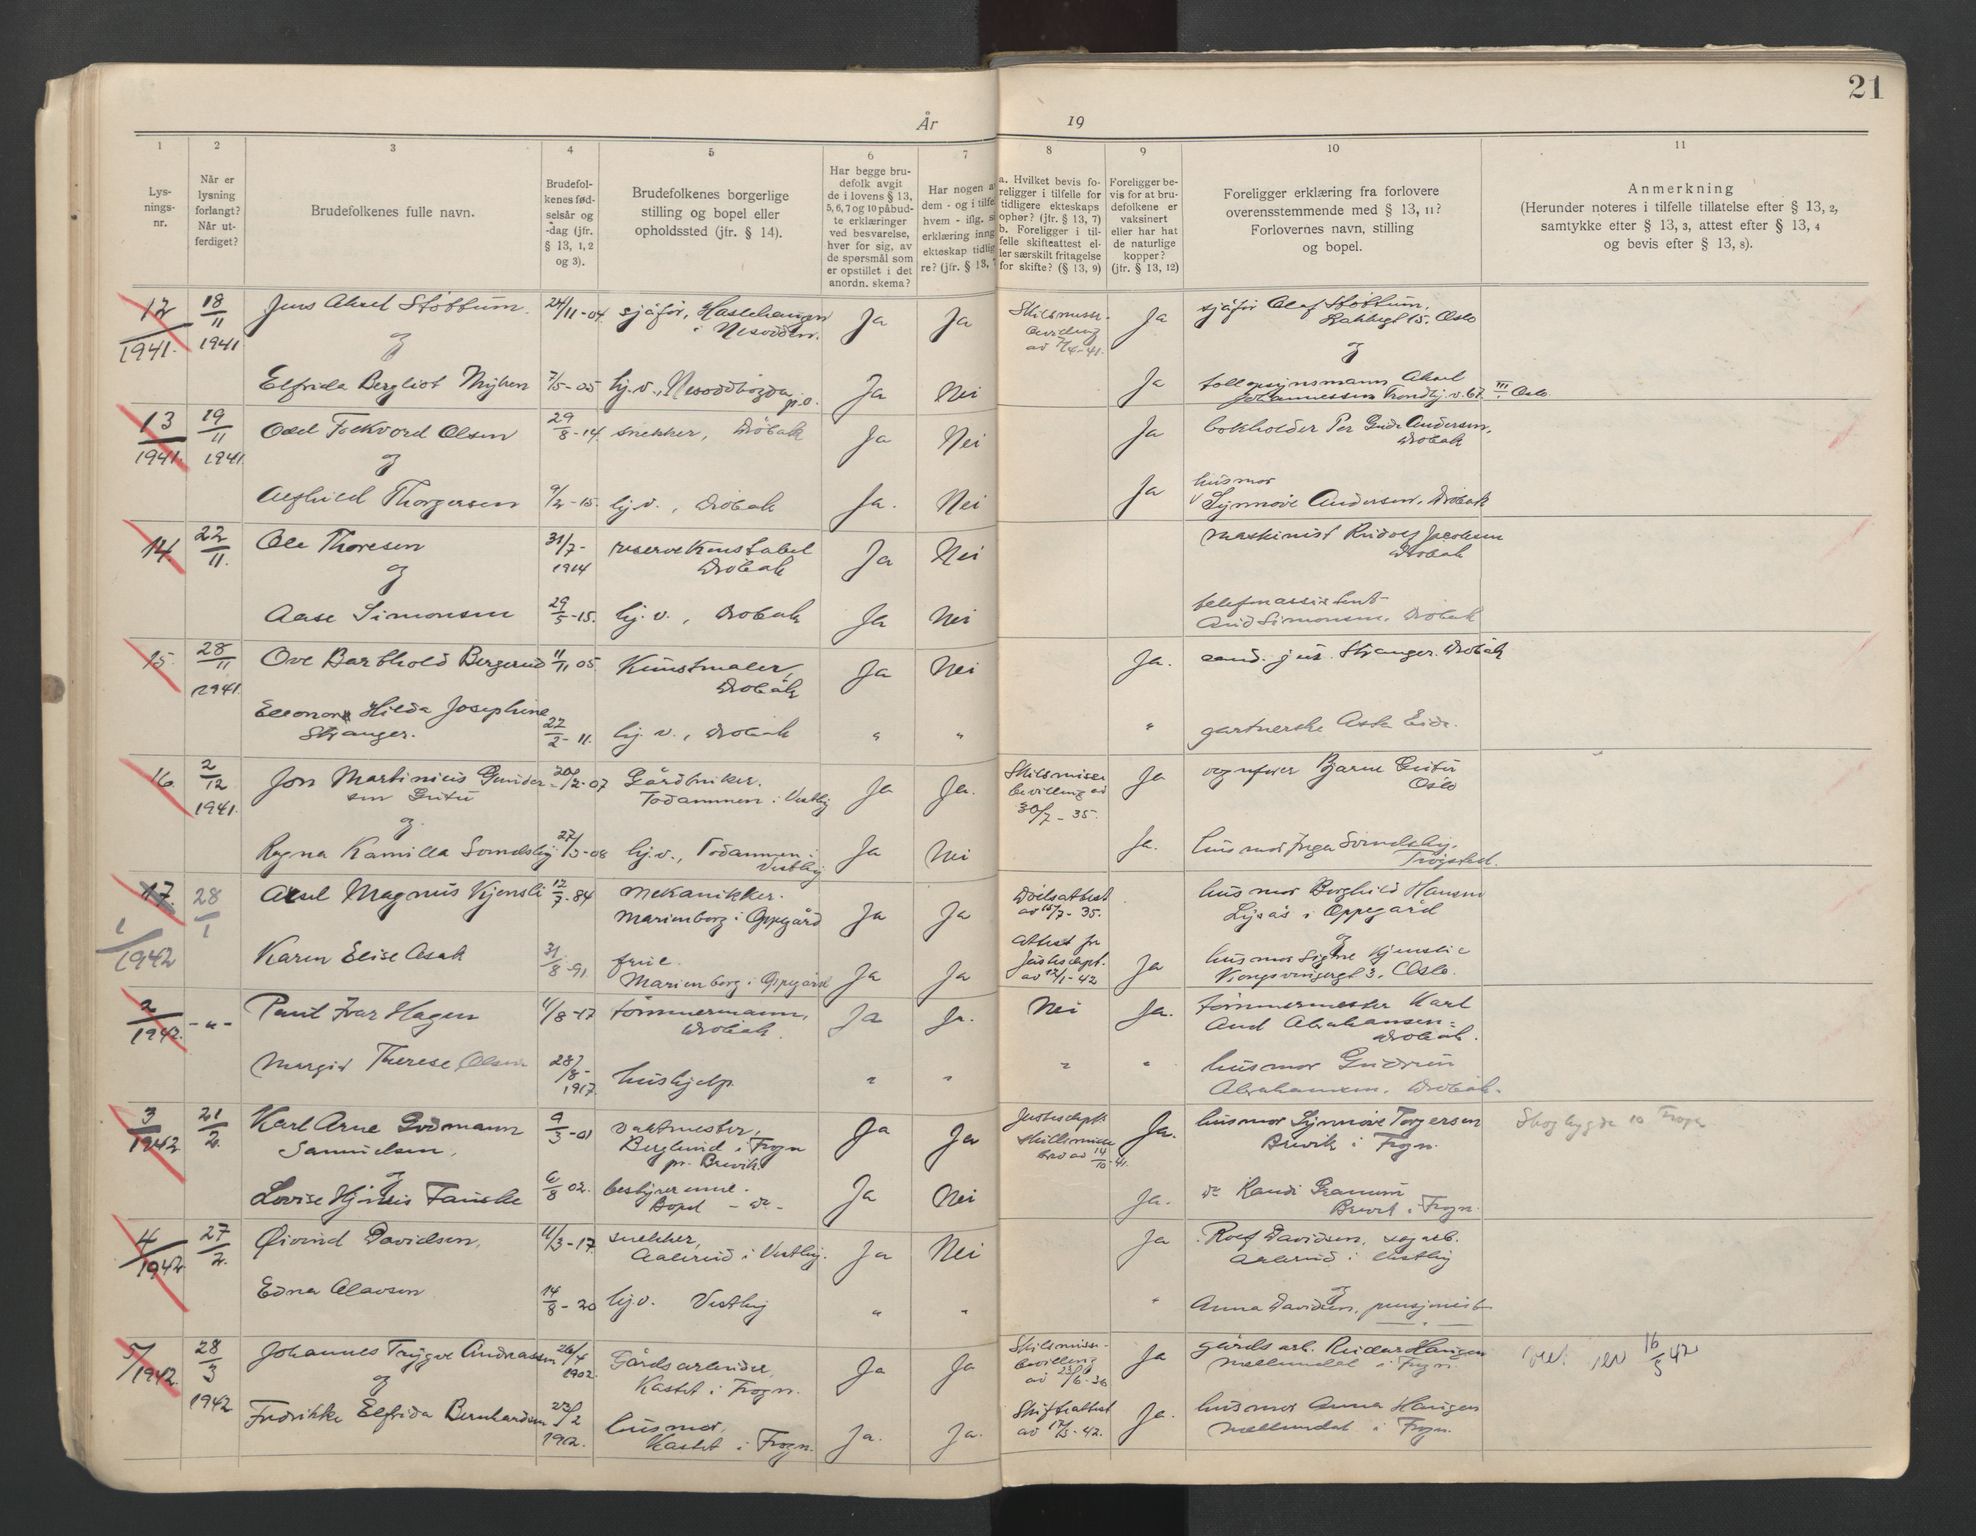 21
År 19
1 2 3 4 5 6 7 8 9 10 11
Lys-
nings-
nr.
Når er
lysning
forlangt?
Når ut-
ferdiget?
Brudefolkenes fulle navn.
Brudefol-
kenes fød-
selsår og
-dag (jfr.
§ 13, 1, 2
og 3).
Brudefolkenes borgerlige
stilling og bopel eller
opholdssted (jfr. § 14).
Har begge bru-
defolk avgit
de i lovens § 13,
5, 6, 7 og 10 påbud-
te erklæringer
ved besvarelse,
hver for sig, av
de spørsmål som
er opstillet i det
anordn. skema?
Har nogen a
dem - og i tilfe
hvem - iflg. si
erklæring inng
ekteskap tidlig
re? (jfr. § 13, 7
a. Hvilket bevis fo-
religger i tilfelle for
tidligere ekteskaps
ophør? (jfr. § 13, 7)
b. Foreligger i til-
felle skifteattest el-
ler særskilt fritagelse
for skifte? (§ 13, 9)
Foreligger be-
vis for at bru-
defolkene er
vaksinert
eller har hat
de naturlige
kopper?
(jfr. § 13, 12)
Foreligger erklæring fra forlovere
overensstemmende med § 13, 11?
Forlovernes navn, stilling
og bopel.
Anmerkning
(Herunder noteres i tilfelle tillatelse efter § 13, 2,
samtykke efter § 13, 3, attest efter § 13, 4
og bevis efter § 13, 8).
12/1941. 18/11 1941 Jens Aksel Støttum. 24/11-04 sjåfør, Haslehaugen
i Nesodden. Ja Ja Skilsmisse-
bevilling
av 7/4-41. Ja sjåfør Olaf Støttum,
15. Oslo
og og
Elfrida Bergliot Myhren 7/5-05 hj.v., Nesoddbygda
p.o. Ja Nei Ja tollopsynsmann Aksel
Johannessen Trondhj.v. 67. III/1 Oslo.
13/1941. 19/11 1941. Odd Folkvord Olsen 29/8-14. snekker, Drøbak Ja Nei Ja bokholder Per Gude Andersen,
Drøbak
og
Alfhild Thorgersen 9/2-15. hj.v., Drøbak Ja. Nei Ja husmor
Synnøve Andersen, Drøbak
14 22/11. Ole Thoresen 31/7-
1914 reservekonstabel
Drøbak Ja Nei maskinist Rudolf Jacobsen
Drøbak
og
Aase Simonsen 29/5-15. hj.v., Drøbak Ja Nei telefonassistent
Aud Simonsen, Drøbak
15. 28/11 1941. Ove Barthold Bergerud 11/11 05 Kunstmaler,
Drøbak Ja Nei Ja. cand. jur. Stranger. Drøbak
Eleonora Hilda Josephine
Stranger. 22/2-11. hj.v., Drøbak " " " gartnerske Asta Eide.
16. 2/12 1941. Jon Martinius Gunder-
sen Gritu 20/2-07 Gårdbruker.
Todammen i Vestby Ja Ja. Skilsmisse
bevilling av
30/7-35. Ja Bjarne Gritu
Oslo
og
Ragna Kamilla Sundsby 27/3-08 hj.v., Todammen i
Vestby Ja Nei Ja. husmor Inga Svindsby,
Trøgstad.
17. 1/1942 28/1 Aksel Magnus Kjensli 12/7-84 mekanikker.
Marienborg i Oppegård Ja Ja Dødsattest
av 15/7-35. husmor Borghild Hansen
Lysås i Oppegård
og
Karen Elise Asak 31/8-91 frue.
Marienborg i Oppegård Ja Ja Attest fr
Justisdept.
av 12/1-42 Ja husmor Signe Kjenslie
Kongsvingergt 3. Oslo.
2/1942. -"- Paul Ivar Hagen 4/8-17 tømmermann,
Drøbak Ja Ja. Nei Ja. tømmermester Karl
Aud Abrahamsen
Drøbak.
Margit Therese Olsen 28/8-
1917 hushjelp " " " " husmor Gudrun
Abrahamsen, Drøbak.
3/1942 21/2. Karl Arne Godmann
Samuelsen, 9/3-01 vaktmester,
Berglund i Frogn
pr. Brevik. Ja Ja Justisdept.
skilsmisse
bev av 14/10-41. Ja. husmor Synnøve Torgersen
Brevik i Frogn. Skogbygda 10 Frogn
og
Lovise Hjørdis Fauske 6/8 02. bestyrerinne.
Bopel - do - Ja Nei Ja. do Randi Granum
Brevik i Frogn.
4/1942 27/2. Øivind Davidsen, 4/3-17. snekker,
i Vestby. Ja Nei Ja Rolf Davidsen,
i Vestby
og
Edna Olavsen 14/8-20 hj.v. Vestby " " " Anna Davidsen, pensjonist
5/1942. 28/3 1942 Johannes Trygve Andreassen 26/4
1902. Gårdsarbeider,
Kastet i Frogn. Ja Ja Skilsmisse-
bevilling
av 23/6-36 Ja gårdsarb. Reidar Haugen
Mellumdal i Frogn. 16/5 42
og
Fredrikke Elfrida Bernhardsen 23/2
1912. husmor,
Kastet i Frogn. Ja. Ja. Skifteattest
av 17/3-42. Ja. husmor Anna Haugen
Mellumdal i Frogn.